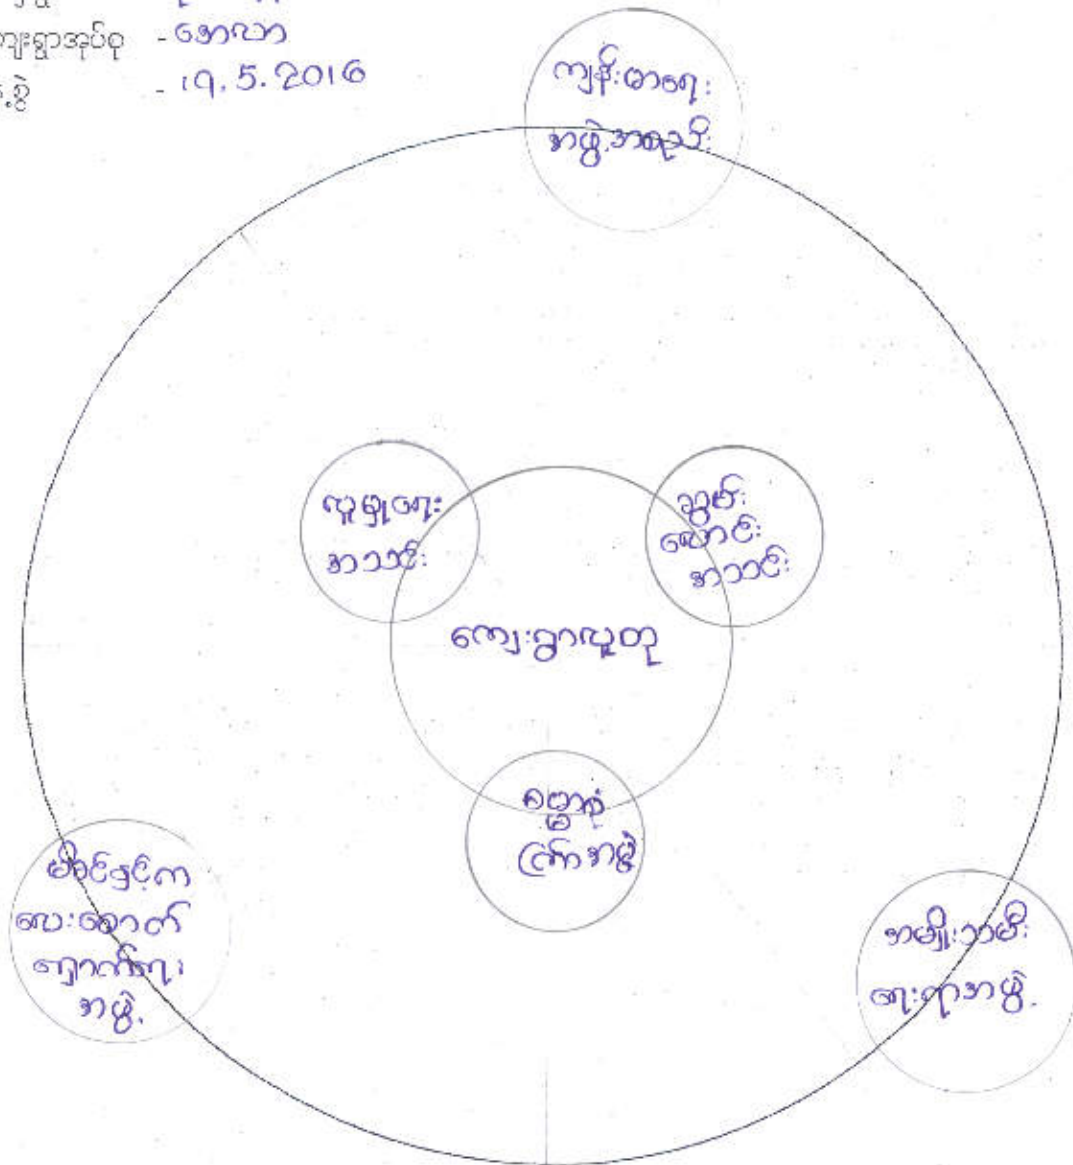 ကျေးရွာအုပ်စု - အောလာ
နေ့စွဲ - 19.5.2016
ကျန်းမာရေး
အဖွဲ့အစည်း
လူမှုရေး
အသင်း
ဆွမ်း
လောင်း
အသင်း
ကျေးရွာလူထု
ဓမ္မာရုံ
အဖွဲ့
မိခင်နှင့်က
လေးစောင့်
ရှောက်ရေး
အဖွဲ့
အမျိုးသမီး
ရေးရာအဖွဲ့